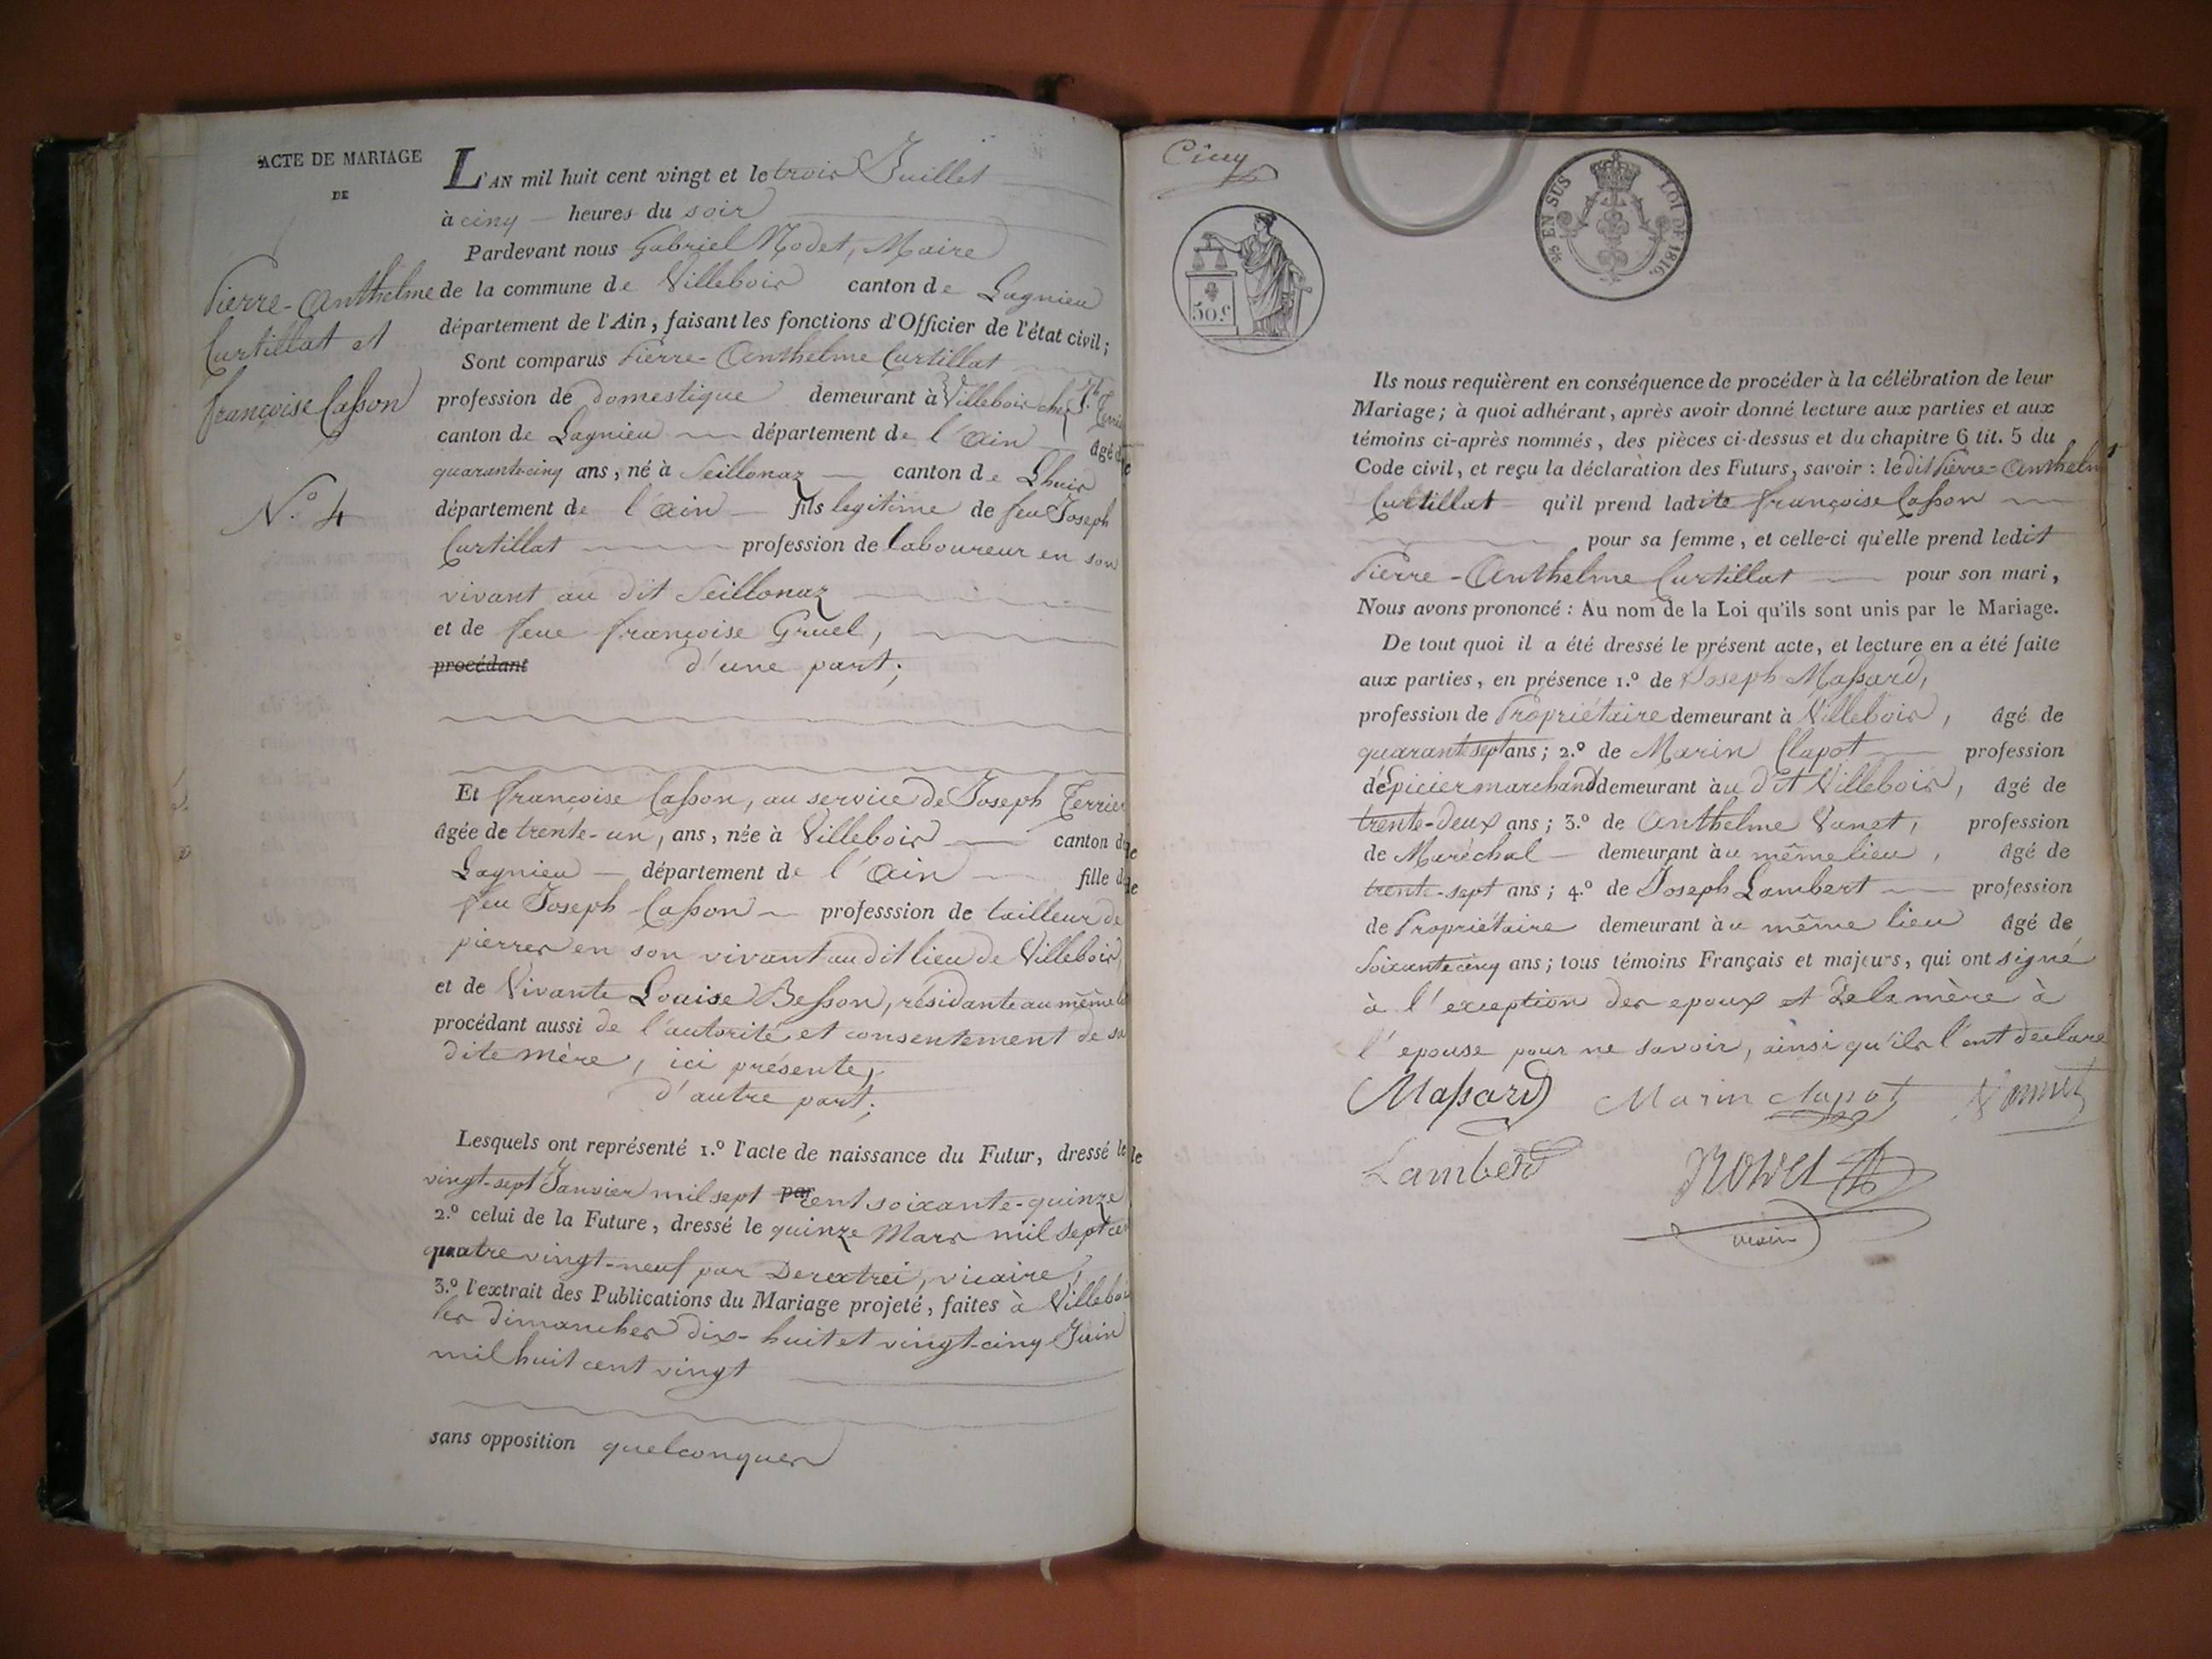 ACTE DE MARIAGE
DE
Pierre-Anthelme
Curtillat et
françoise Casson
N.o 4
L'AN mil huit cent vingt et le trois Juillet
à cinq heures du soir
Pardevant nous Gabriel Nodet, Maire
de la commune de Villebois canton de Lagnieu
département de l'Ain, faisant les fonctions d'Officier de l'état civil;
Sont comparus Pierre-Anthelme Curtillat
profession de domestique demeurant à Villebois chez J.h
canton de Lagnieu département de l'ain agé de
quarante-cinq ans, né à Seillonaz canton de Lhuis
département de l'ain fils legitime de feu Joseph
Curtillat profession de laboureur en son
vivant au dit Seillonaz
et de feue françoise Gruel,
procédant d'une part;
Et françoise Casson, au service de Joseph Terrier
agée de trente-un, ans, née à Villebois canton de
Lagnieu département de l'ain fille de
feu Joseph Casson professsion de tailleur de
pierres en son vivant au dit lieu de Villebois,
et de Vivante Louise Besson, résidante au même
procédant aussi de l'autorité et consentement de sa
dite mère, ici présente,
d'autre part;
Lesquels ont représenté 1.o l'acte de naissance du Futur, dressé le
vingt-sept Janvier mil sept par cent soixante-quinze
2.o celui de la Future, dressé le quinze Mars mil sept
quatre vingt-neuf par vicaire,
3.o l'extrait des Publications du Mariage projeté, faites à Villebois
les dimanches dix-huit et vingt-cinq Juin
mil huit cent vingt
sans opposition quelconques
Cinq
50.c
EN SUS LOI DE 1816.
Ils nous requièrent en conséquence de procéder à la célébration de leur
Mariage; à quoi adhérant, après avoir donné lecture aux parties et aux
témoins ci-après nommés, des pièces ci-dessus et du chapitre 6 tit. 5 du
Code civil, et reçu la déclaration des Futurs, savoir : le dit Pierre-Anthelme
Curtillat qu'il prend ladite françoise Casson
pour sa femme, et celle-ci qu'elle prend ledit
Pierre-Anthelme Curtillat pour son mari,
Nous avons prononcé : Au nom de la Loi qu'ils sont unis par le Mariage.
De tout quoi il a été dressé le présent acte, et lecture en a été faite
aux parties, en présence 1.o de Joseph Massard,
profession de Propriétaire demeurant à Villebois, agé de
quarante sept ans; 2.o de Marin Clapot profession
d'épicier marchand demeurant à au dit Villebois, agé de
trente-deux ans; 3.o de Anthelme Vanet, profession
de Maréchal demeurant à au même lieu, agé de
trente-sept ans; 4.o de Joseph Lambert profession
de Propriétaire demeurant à au même lieu agé de
soixante cinq ans; tous témoins Français et majeurs, qui ont signé
à l'exception des epoux et de la mère à
l'epouse pour ne savoir, ainsi qu'ils l'ont declare
Massard Marin clapot Vannet
Lambert Nodet
maire